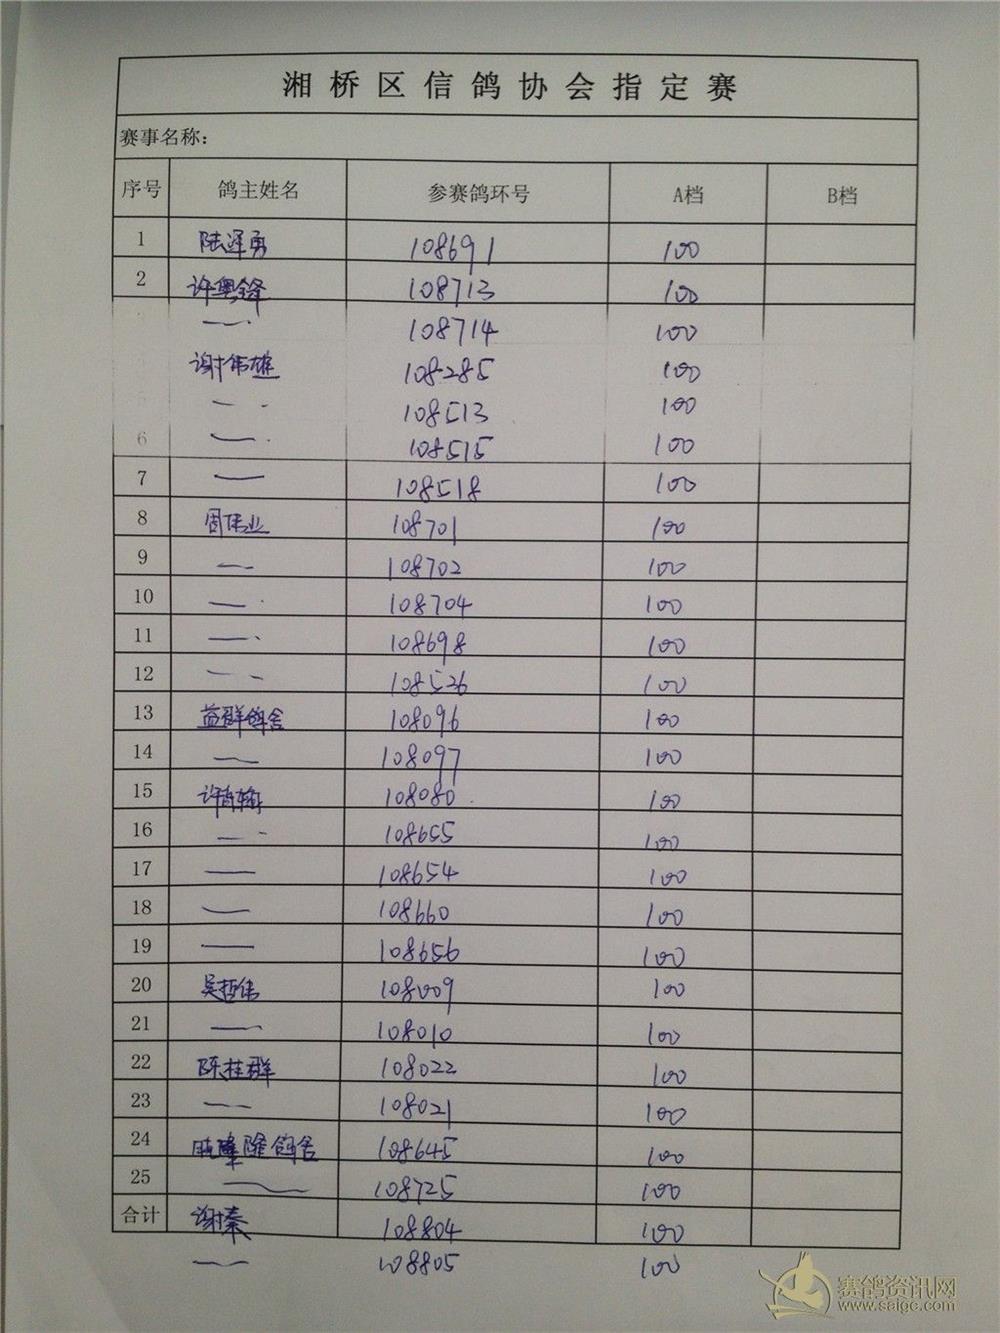 湘桥区信鸽协会指定赛
赛事名称：
序号 鸽主姓名 参赛鸽环号 A档 B档
1 陆泽勇 108691 100
2 许粤锋 108713 100
— 108714 100
谢伟雄 108285 100
5 — 108513 100
6 — 108515 100
7 — 108518 100
8 周伟业 108701 100
9 — 108702 100
10 — 108704 100
11 — 108698 100
12 — 108526 100
13 益群鸽舍 108096 100
14 — 108097 100
15 许 108080 100
16 — 108655 100
17 — 108654 100
18 — 108660 100
19 — 108656 100
20 吴哲伟 108009 100
21 — 108010 100
22 陈桂群 108022 100
23 — 108021 100
24 隆鸽舍 108645 100
25 — 108725 100
合计 谢秦 108804 100
— 108805 100
赛鸽资讯网
www.saigc.com